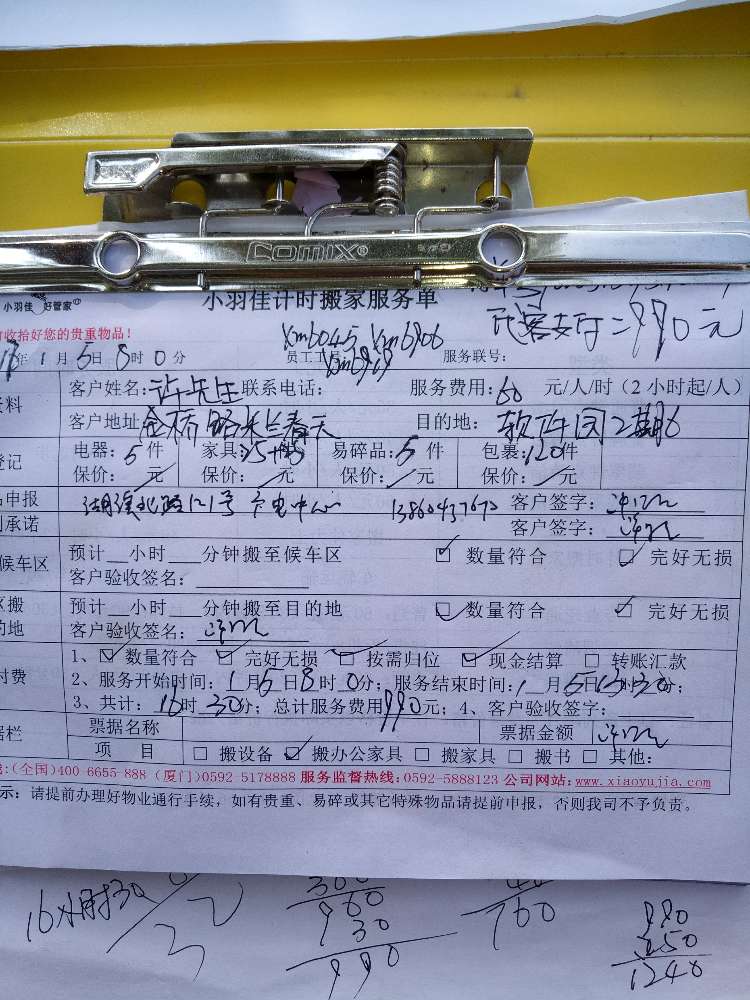 COMIX®
小羽佳 好管家
小羽佳计时搬家服务单
代客支付=990元
收拾好您的贵重物品！
年1月5日8时0分 员工工号 xm6045 xm6906 xm6969 服务联号：
资料 客户姓名：许先生 联系电话： 服务费用：60 元/人/时（2小时起/人）
客户地址 金桥路 春天 目的地： 软件园2期6
登记 电器：5件 家具：25件 易碎品：5件 包裹：120件
保价： 元 保价： 元 保价： 元 保价： 元
品申报 湖滨北路121号 中心 13860437670 客户签字：
承诺 客户签字：
候车区 预计__小时__分钟搬至候车区 ☑ 数量符合 ☑ 完好无损
客户验收签名：
区搬 预计__小时__分钟搬至目的地 ☑ 数量符合 ☑ 完好无损
的地 客户验收签名：
付费 1、☑ 数量符合 ☑ 完好无损 ☑ 按需归位 ☑ 现金结算 □ 转账汇款
2、服务开始时间：1月5日8时0分；服务结束时间：1月5日13时30分；
3、共计：16时30分；总计服务费用990元；4、客户验收签字：
据栏 票据名称 票据金额
项 目 □ 搬设备 ☑ 搬办公家具 □ 搬家具 □ 搬书 □ 其他：
:(全国)400 6655-888 (厦门)0592-5178888 服务监督热线:0592-5888123 公司网站:www.xiaoyujia.com
示：请提前办理好物业通行手续，如有贵重、易碎或其它特殊物品请提前申报，否则我司不予负责。
16小时30
300
960
30
990
760
990
250
1240